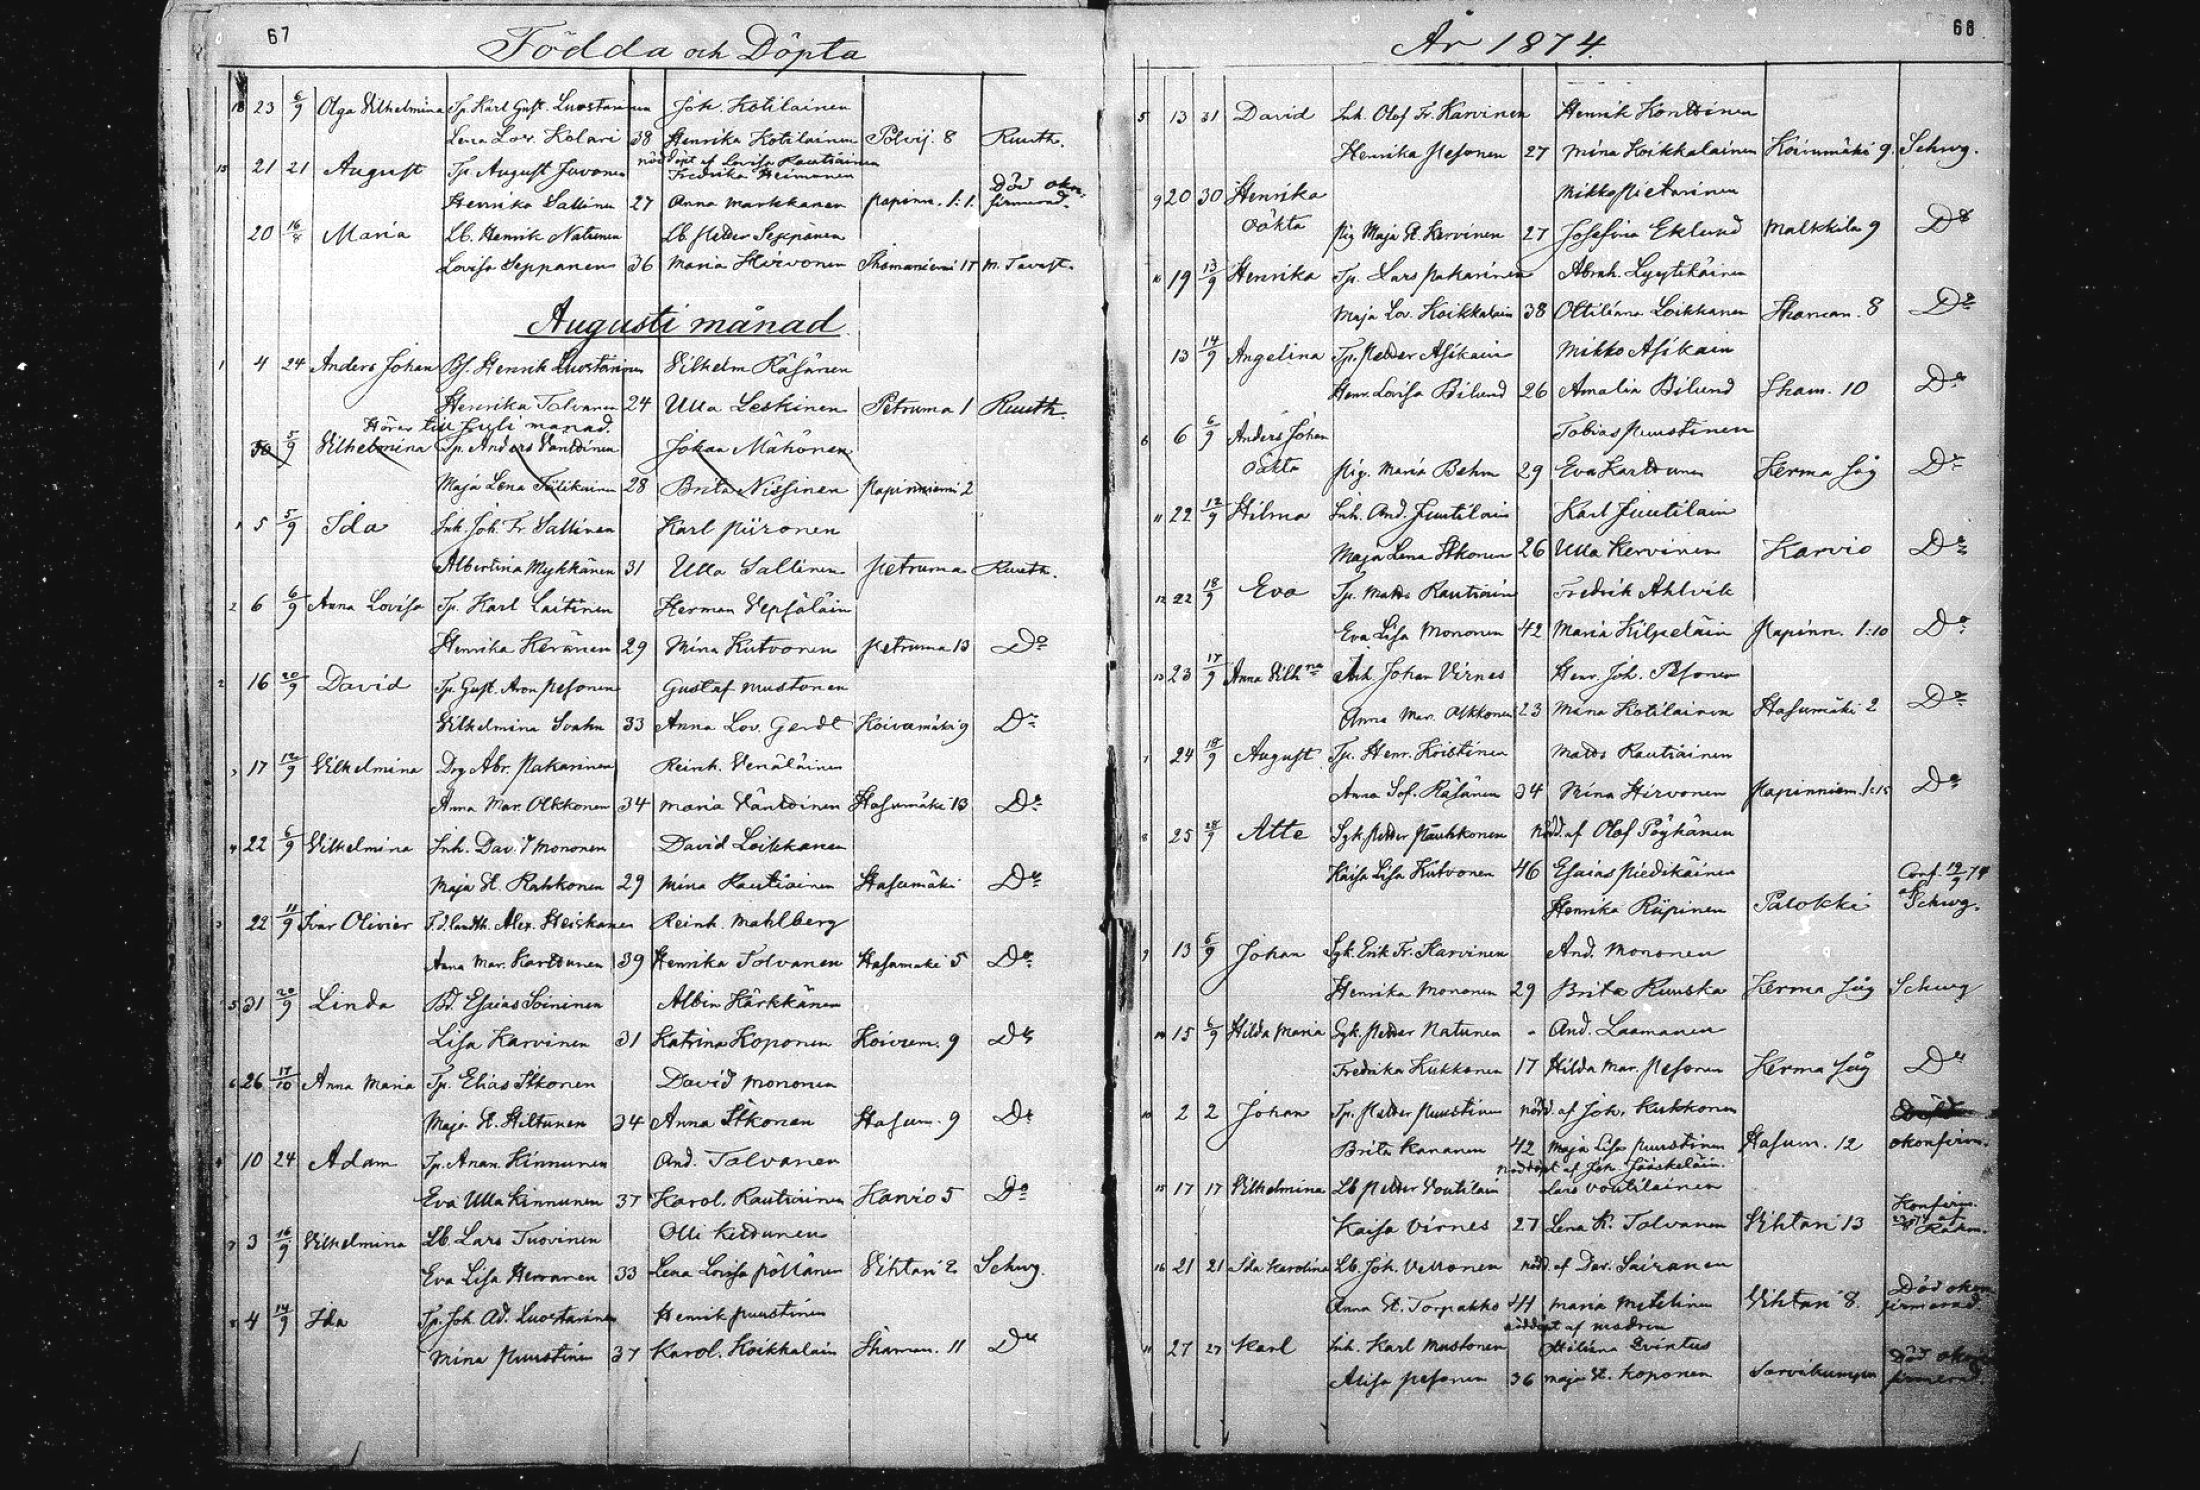 67
Födda och Döpta
18 23 6/9 Olga Vilhelmina Tp. Karl Gust. Luostarinen Joh. Kotilainen
Lena Lov. Kolari 38 Henrika Kotilainen Polvij. 8 Ruuth.
nöddöpt af Lovisa Rautiainen
15 21 21 August Tp. August Juvonen Fredrika Heimonen
Henrika Sallinen 27 Anna Markkanen Papinn. 1:1. Död okonfirmerad.
20 16/8 Maria Lb. Henrik Natunen Lb. Petter Seppänen
Lovisa Seppänen 36 Maria Hirvonen 17 M. Tavast.
Augusti månad
1 4 24 Anders Johan Bf. Henrik Luostarinen Vilhelm Räsänen
Henrika Tolvanen 24 Ulla Leskinen Petruma 1 Ruuth.
Hörer till Juli månad.
30 5/9 Vilhelmina Tp. Anders Vänttinen Johan Mähönen
Maja Lena Tiilikainen 28 Brita Nissinen Papinniemi 2
1 5 5/9 Ida Inh. Joh. Fr. Sallinen Karl Piironen
Albertina Mykkänen 31 Ulla Sallinen Petruma Ruuth.
2 6 6/9 Anna Lovisa Tp. Karl Laitinen Herman Vepsäläin
Henrika Keränen 29 Mina Kutvonen Petruma 13 Do
2 16 20/9 David Tp. Gust. Aron Pesonen Gustaf Mustonen
Vilhelmina Svahn 33 Anna Lov. Gerdt Koivumäki 9 Do
3 17 12/9 Vilhelmina Drg Abr. Pakarinen Reinh. Venäläinen
Anna Mar. Olkkonen 34 Maria Vänttinen Hasumäki 13 Do
4 22 6/9 Vilhelmina Inh. David Mononen David Loikkanen
Maja St. Rahkonen 29 Mina Rautiainen Hasumäki Do
3 22 11/9 Ivar Olivier F.d. landth. Alex. Heiskanen Reinh. Mahlberg
Anna Mar. Karttunen 39 Henrika Tolvanen Hasumäki 5 Do
5 31 20/9 Linda Bd. Esaias Soininen Albin Kärkkänen
Lisa Karvinen 31 Katrina Koponen Koivum. 9 Do
6 26 17/10 Anna Maria Tp. Elias Itkonen David Mononen
Maja St. Hiltunen 34 Anna Itkonen Hasum. 9 Do
4 10 24 Adam Tp. Anan. Kinnunen And. Tolvanen
Eva Ulla Kinnunen 37 Karol. Rautiainen Karvio 5 Do
7 3 16/9 Vilhelmina Lb. Lars Tuovinen Olli Kettunen
Eva Lisa Hevvanen 33 Lena Lovisa Pöllänen Vihtari 2 Schvg.
8 4 14/9 Ida Tp. Joh. Ad. Luostarinen Henrik Puustinen
Mina Puustinen 37 Karol. Koikkalain Sharman. 11 Do
År 1874.
68
5 13 31 David Inh. Olof Fr. Karvinen Henrik Konttinen
Henrika Pesonen 27 Mina Koikkalainen Koivumäki 9. Schvg.
9 20 30 Henrika Mikko Pietarinen
oäkta Pig Maja St. Kervinen 27 Josefina Eklund Malkkila 9 Do
10 19 13/9 Henrika Tp. Lars Pakarinen Abrah. Lyytikäinen
Maja Lov. Koikkalain 38 Ottiliana Loikkanen Sharman. 8 Do
13 14/9 Angelina Tp. Petter Asikain Mikko Asikain
Henr. Lovisa Bilund 26 Amalia Bilund Sham. 10 Do
6 6 6/9 Anders Johan Tobias Puustinen
oäkta Pig. Maria Behm 29 Eva Karttunen Kerma Såg Do
11 22 12/9 Hilma Inh. And. Juutilain Karl Juutilain
Maja Lena Itkonen 26 Ulla Kervinen Karvio Do
12 22 18/9 Eva Tp. Matts Rautiain Fredrik Ahlvik
Eva Lisa Mononen 42 Maria Kilpeläin Papinn. 1:10 Do
13 23 17/9 Anna Vilhna Inh. Johan Virnes Henr. Joh. Pesonen
Anna Mar. Olkkonen 23 Mina Kotilainen Hasumäki 2 Do
7 24 18/9 August Tp. Henr. Koistinen Matts Rautiainen
Anna Sof. Räsänen 34 Mina Hirvonen Papinniem. 1:15 Do
8 25 28/9 Atte Sgk. Petter Pauhkonen nödd. af Olof Pöyhänen
Kaisa Lisa Kutvonen 46 Esaias Piedikäinen Conf. 19/9 74
Henrika Riipinen Palokki af Schvg.
9 13 6/9 Johan Sgk. Erik Fr. Karvinen And. Mononen
Henrika Mononen 29 Brita Ruuska Kerma Såg Schvg
14 15 6/9 Hilda Maria Sgk. Petter Natunen - And. Laamanen
Fredrika Kukkonen 17 Hilda Mar. Pesonen Kerma Såg Do
10 2 2 Johan Tp. Petter Puustinen nödd. af Joh. Kukkonen
Brita Kananen 42 Maja Lisa Puustinen Hasum. 12 okonfirm.
nöddöpt af Joh. Jääskeläin.
15 17 17 Vilhelmina Lb Petter Voutilain Lars Voutilainen
Kaisa Virnes 27 Lena K. Tolvanen Vihtari 13 Konfirm.
16 21 21 Ida Karolina Lb. Joh. Vellonen nödd. af Dav. Sairanen
Anna St. Torpakko 41 Maria Miettinen Vihtari 8. Död okonfirmerad.
nöddöpt af modren
11 27 27 Karl Inh. Karl Mustonen Ottiliana Qvintus
Alisa Pesonen 36 Maja St. Koponen Sarvikumpu Död okonfirmerad.